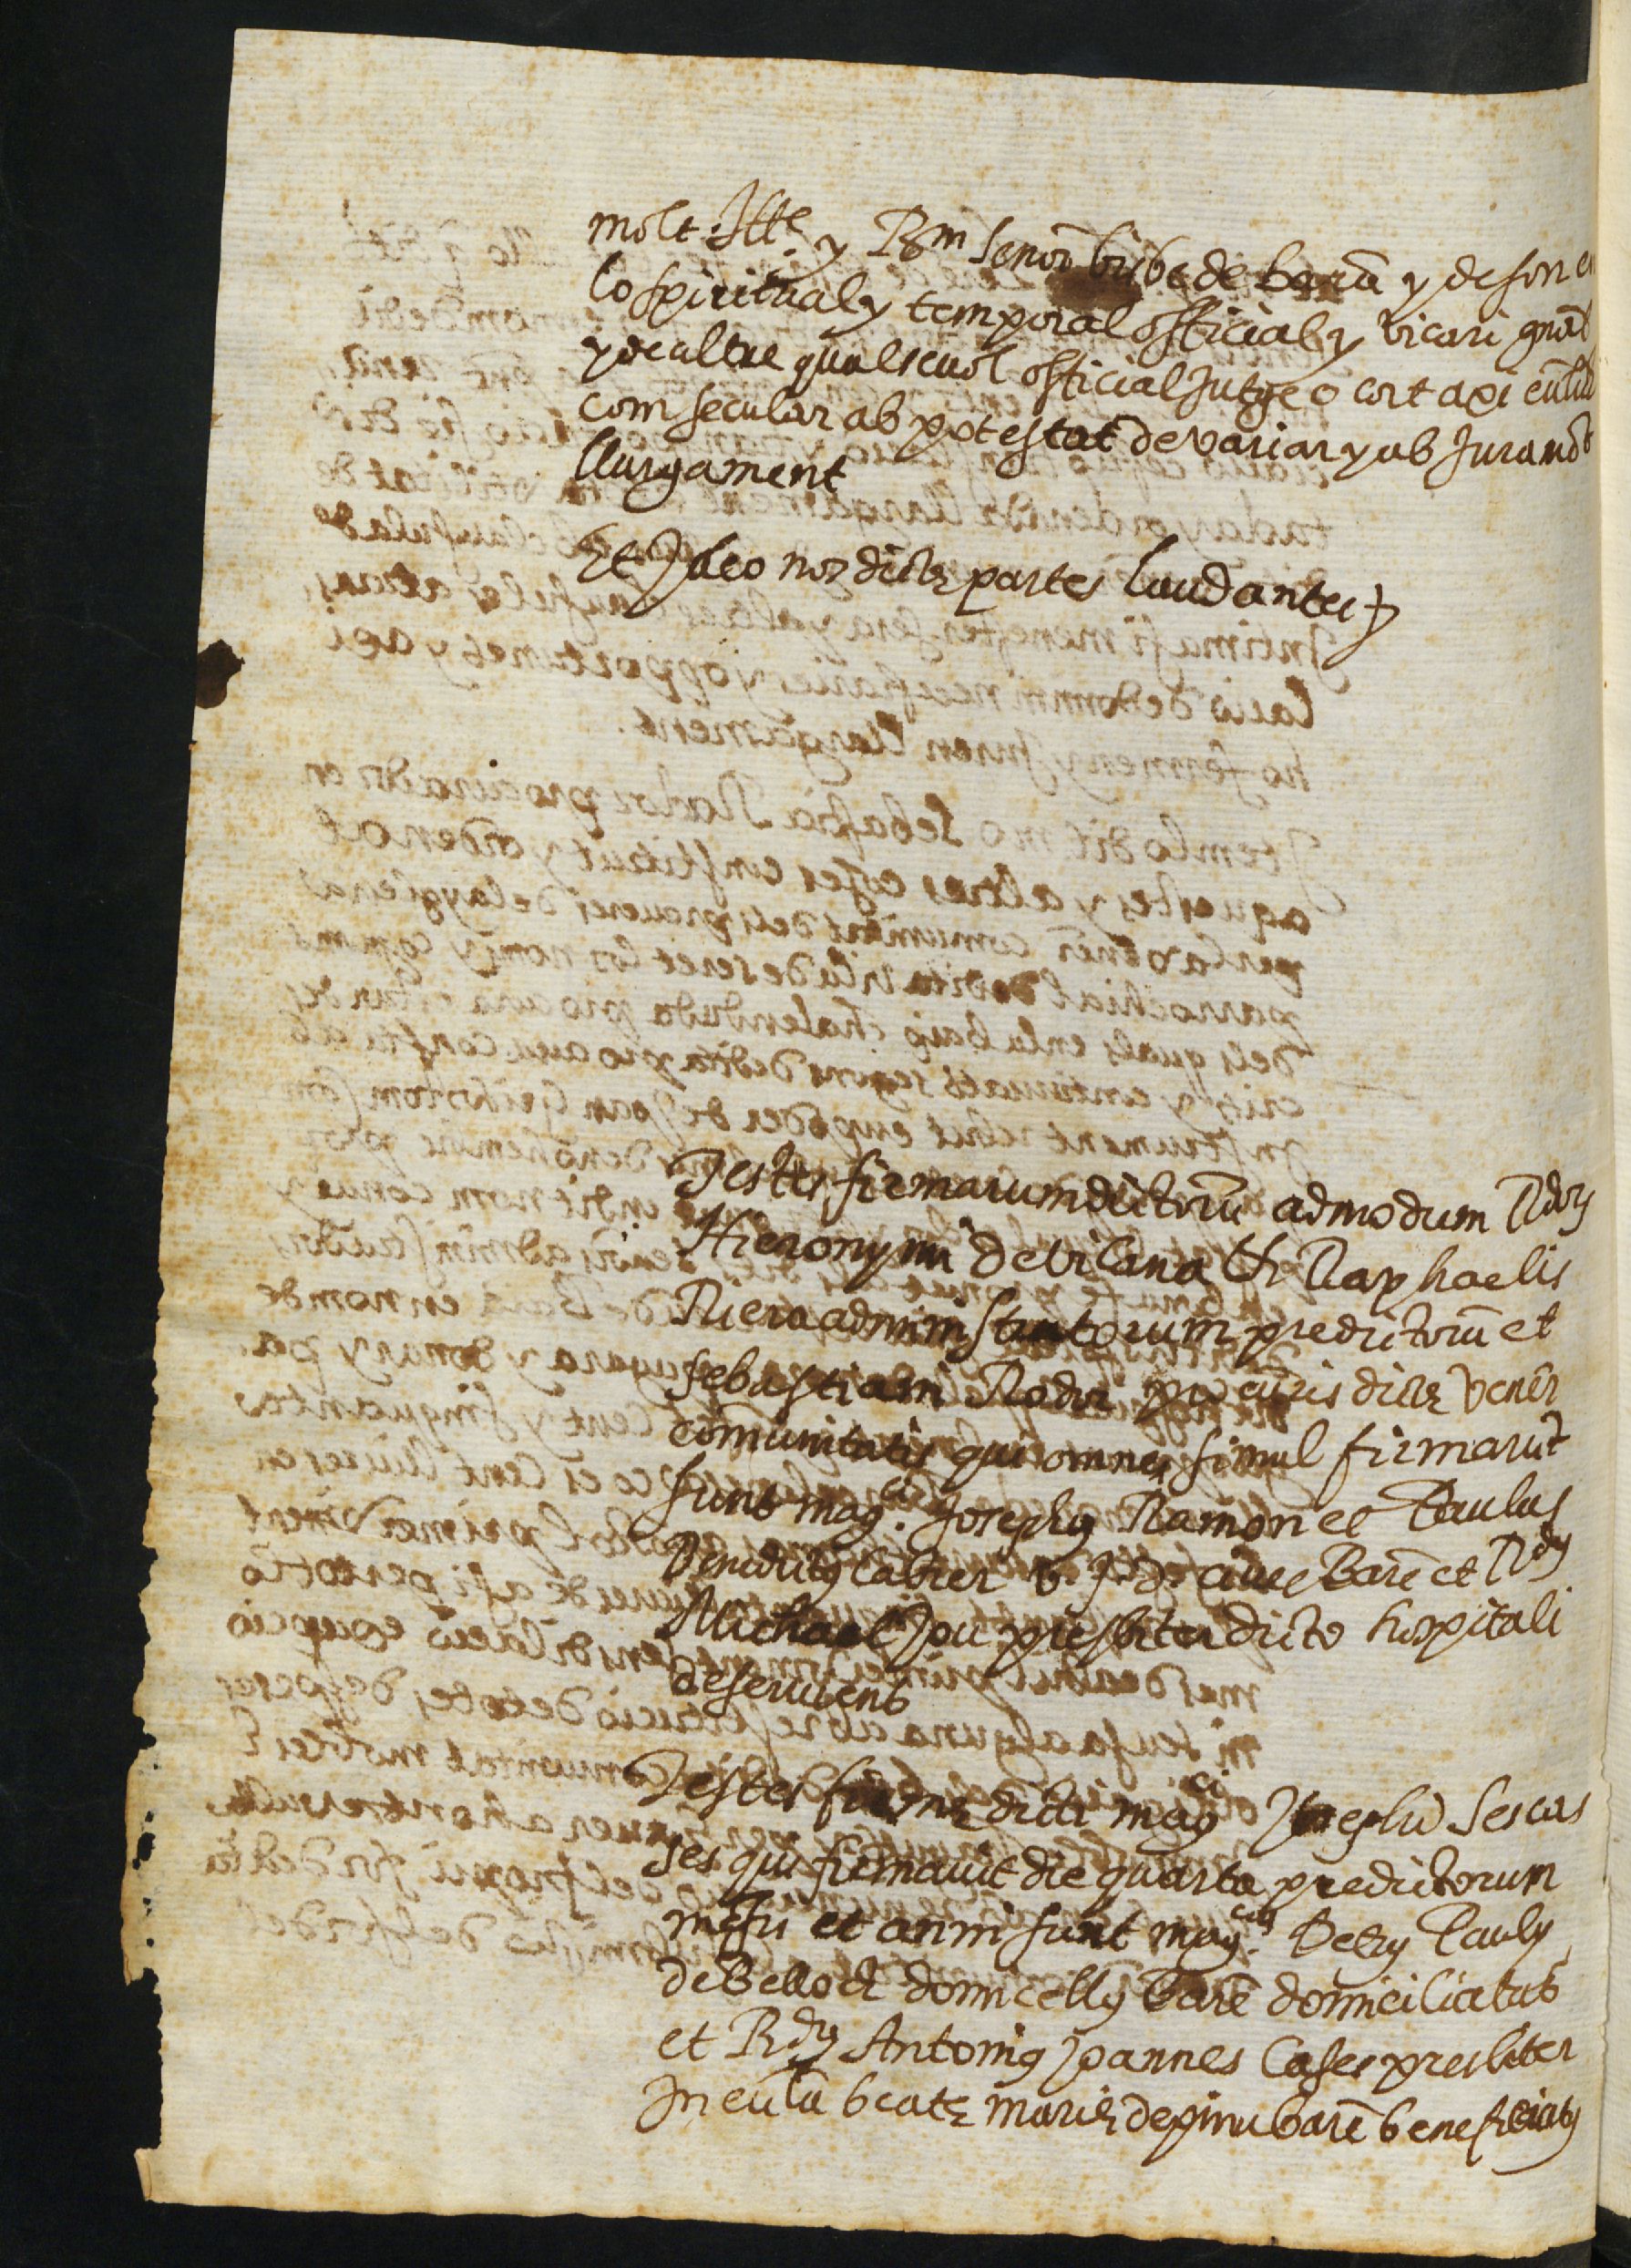 molt Ille. y Rm Senor bisbe de barã y de son en
lo spiritual y temporal official y vicari gñal
y de altre qualsevol official Jutge o cort axi eccl̃ial
com secular ab potestat de variar y ab Juramẽt
llargament
Et Ideo nos dictȩ partes laudantes
Testes firmarum dictorũ admodum Rdorũ
Hieronymi de vilana et Raphaelis
Riera administratorum predictorũ et
sebastiani Rador procuris dictȩ venẽr
comunitatis qui omnes simul firmarũt
sunt magci. Josephus Ramon et Paulus
Benedictus cabrer v. J. d. cives Barẽ et Rdus
Michael Jou presbiter dicto hospitali
deserviens
Testes firmȩ dicti magci Josephi Sescas
ses qui firmavit die quarta predictorum
mẽsis et anni sunt magcus. Petrus Paulus
de Belloch domicellus Barẽ domiciliatus
et Rdus Antonius Joannes Cases presbiter
In eccl̃ia beatȩ mariȩ de pinu barẽ beneficiatus